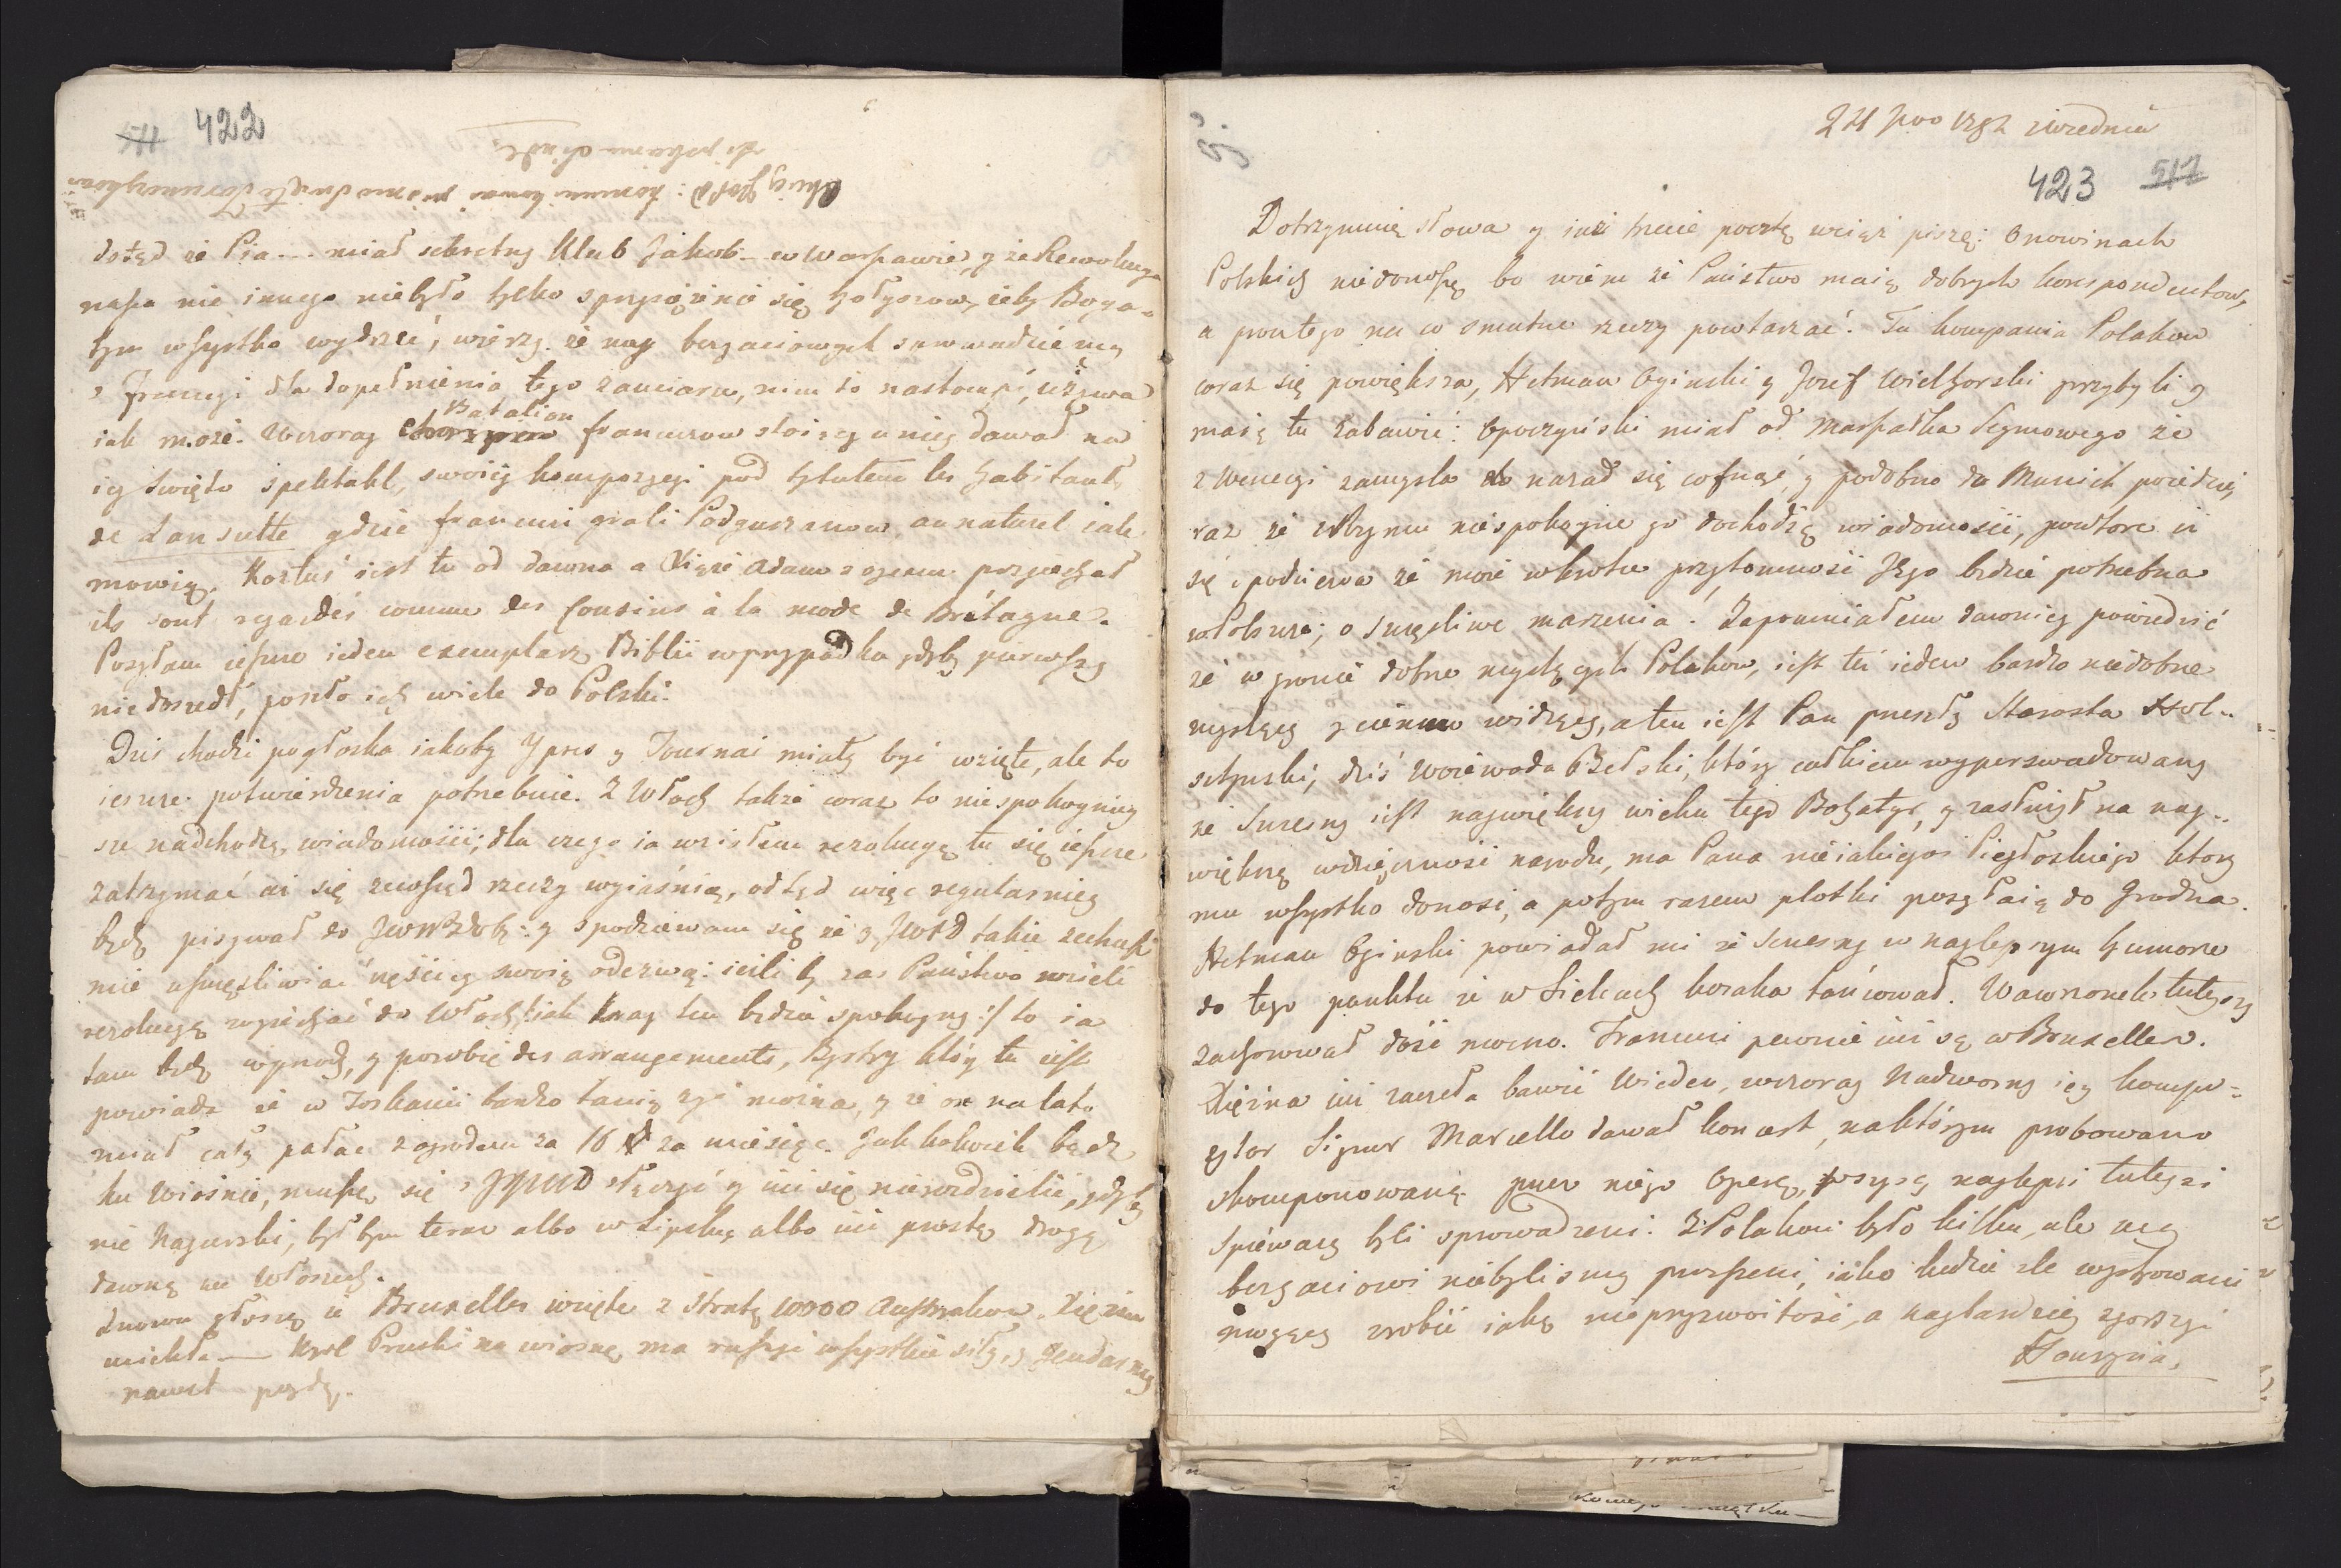 422
dotąd że Pia--- miał sekretny Klub Jakob- w Warszawie, y że Rewolucya
nasza nic innego niebyło tylko sprzysiężenie się hołyszow, żeby Boga-
tym wszystko wydrzeć, wierzy że my bezzaciowych
z Francyi dla dopełnienia tego zamiaru, nim to nastompi, używa
iak może. Wczoray Batalion francuzow stoiący u niey dawał na
iey święto spektakl, swoiey kompozycyi pod tytułem les habitants
de Lansutte gdzie francuzi grali Podgurzanow au naturel iak
mowią. Kostuś iest tu od dawna a Xiąże Adam z oycem przyiechał
ils sont regardés comme des Cousins à la mode de Brétagne.
Posyłam ieszcze ieden exemplarz Biblii w przypadku gdyby pierwszy
nie doszedł, poszło ich wiele do Polski.
Dziś chodzi pogłoska iakoby Ypres y Tournai miały być wzięte, ale to
ieszcze potwierdzenia potrzebuie. Z Włoch także coraz to niespokoyniey
sze nadchodzą wiadomości; dla czego ia wziołem rezolucyę tu się ieszcze
zatrzymać aż się zewsząd rzeczy wyiaśnią, odtąd więc regularniey
będę pisywał do JWWPDob: y spodziewam się że y JWPD także zechcesz
mie uszczęśliwiać częściey swoią odezwą: ieśliby zas Państwo wzieli
rezolucyę wyiechać do Włoch /: iak kray ten będzie spokoyny :/ to ia
tam będę wprzod, y porobię des arrangements, Bystry który tu iest
powiada że w Toskanii bardzo tanio żyć można, y że on na lato
miał cały pałac z ogrodem za 16 # za miesiąc. Jak kolwiek bądz
ku wiośnie, muszę się z JWPD złączyć y iuż się nierozdzielić, gdyby
nie Nagurski, był bym teraz albo w Lipsku albo iuż prostą drogą
dawną we Włoszech.
Znowu głoszą iż Bruxelles wzięte z stratą 10000 Austryakow. Xiężna
uciekła — Krol Pruski na wiosnę ma ruszyć wszystkie siły, y Gendarmy
nawet poydą.
24 9bro 1792 z Wiednia
423 517
Dotrzymuię słowa y iuż trzecie pocztę wciąż piszę: O nowinach
Polskich niedonoszę bo wiem że Państwo maią dobrych korespondentow,
a powtore na co smutne rzeczy powtarzać. Tu kompania Polakow
coraz się powiększa, Hetman Oginski y Jozef Wielhorski przybyli y
maią tu zabawić: Opoczyński miał od Marszałka Seymowego że
z Wenecyi zamyśla nazad się cofnąć, y podobno do Munich poiedzie,
raz że z Rzymu niespokoyne go dochodzą wiadomości, powtore iż
się spodziewa że może wkrotce przytomność Jego będzie potrzebna
w Polszcze; o szczęśliwe marzenia. Zapomniałem dawniey powiedzieć
że w gronie dobrze myślących Polakow, iest też ieden bardzo niedobrze
myślący y ciemno widzący, a ten iest Pan przeszły Starosta Hol-
sztynski, dziś Woiewoda Bełski, który całkiem wyperswadowany
że Szczesny iest naywiększy wieku tego Bohatyr, y zasłużył na nay-
większą wdzięczność narodu, ma Pana nieiakiegoś Piegłoskiego ktory
mu wszystko donosi, a potym razem plotki posyłaią do Grodna.
Hetman Oginski powiadał mi że Szczesny w naylepszym humorze
do tego punktu że w Sielcach kozaka tańcował. Wawrzonek tuteyszy
zachorował dość mocno. Francuzi pewnie iuż są w Bruxelles.
Xiężna iuż zaczęła bawić Wieden, wczoray Nadworny iey kompo-
zytor Signor Marcello dawał koncert, na którym probowano
skomponowaną przez niego Operę, wszyscy naylepsi tuteysi
spiewacy byli sprowadzeni. Z Polakow było kilku, ale my
bezzaciowi niebylismy proszeni, iako ludzie źle wychowani
mogący zrobić iaką nieprzyzwoitość, a naybardziey zgorszyć
Kouzyna.